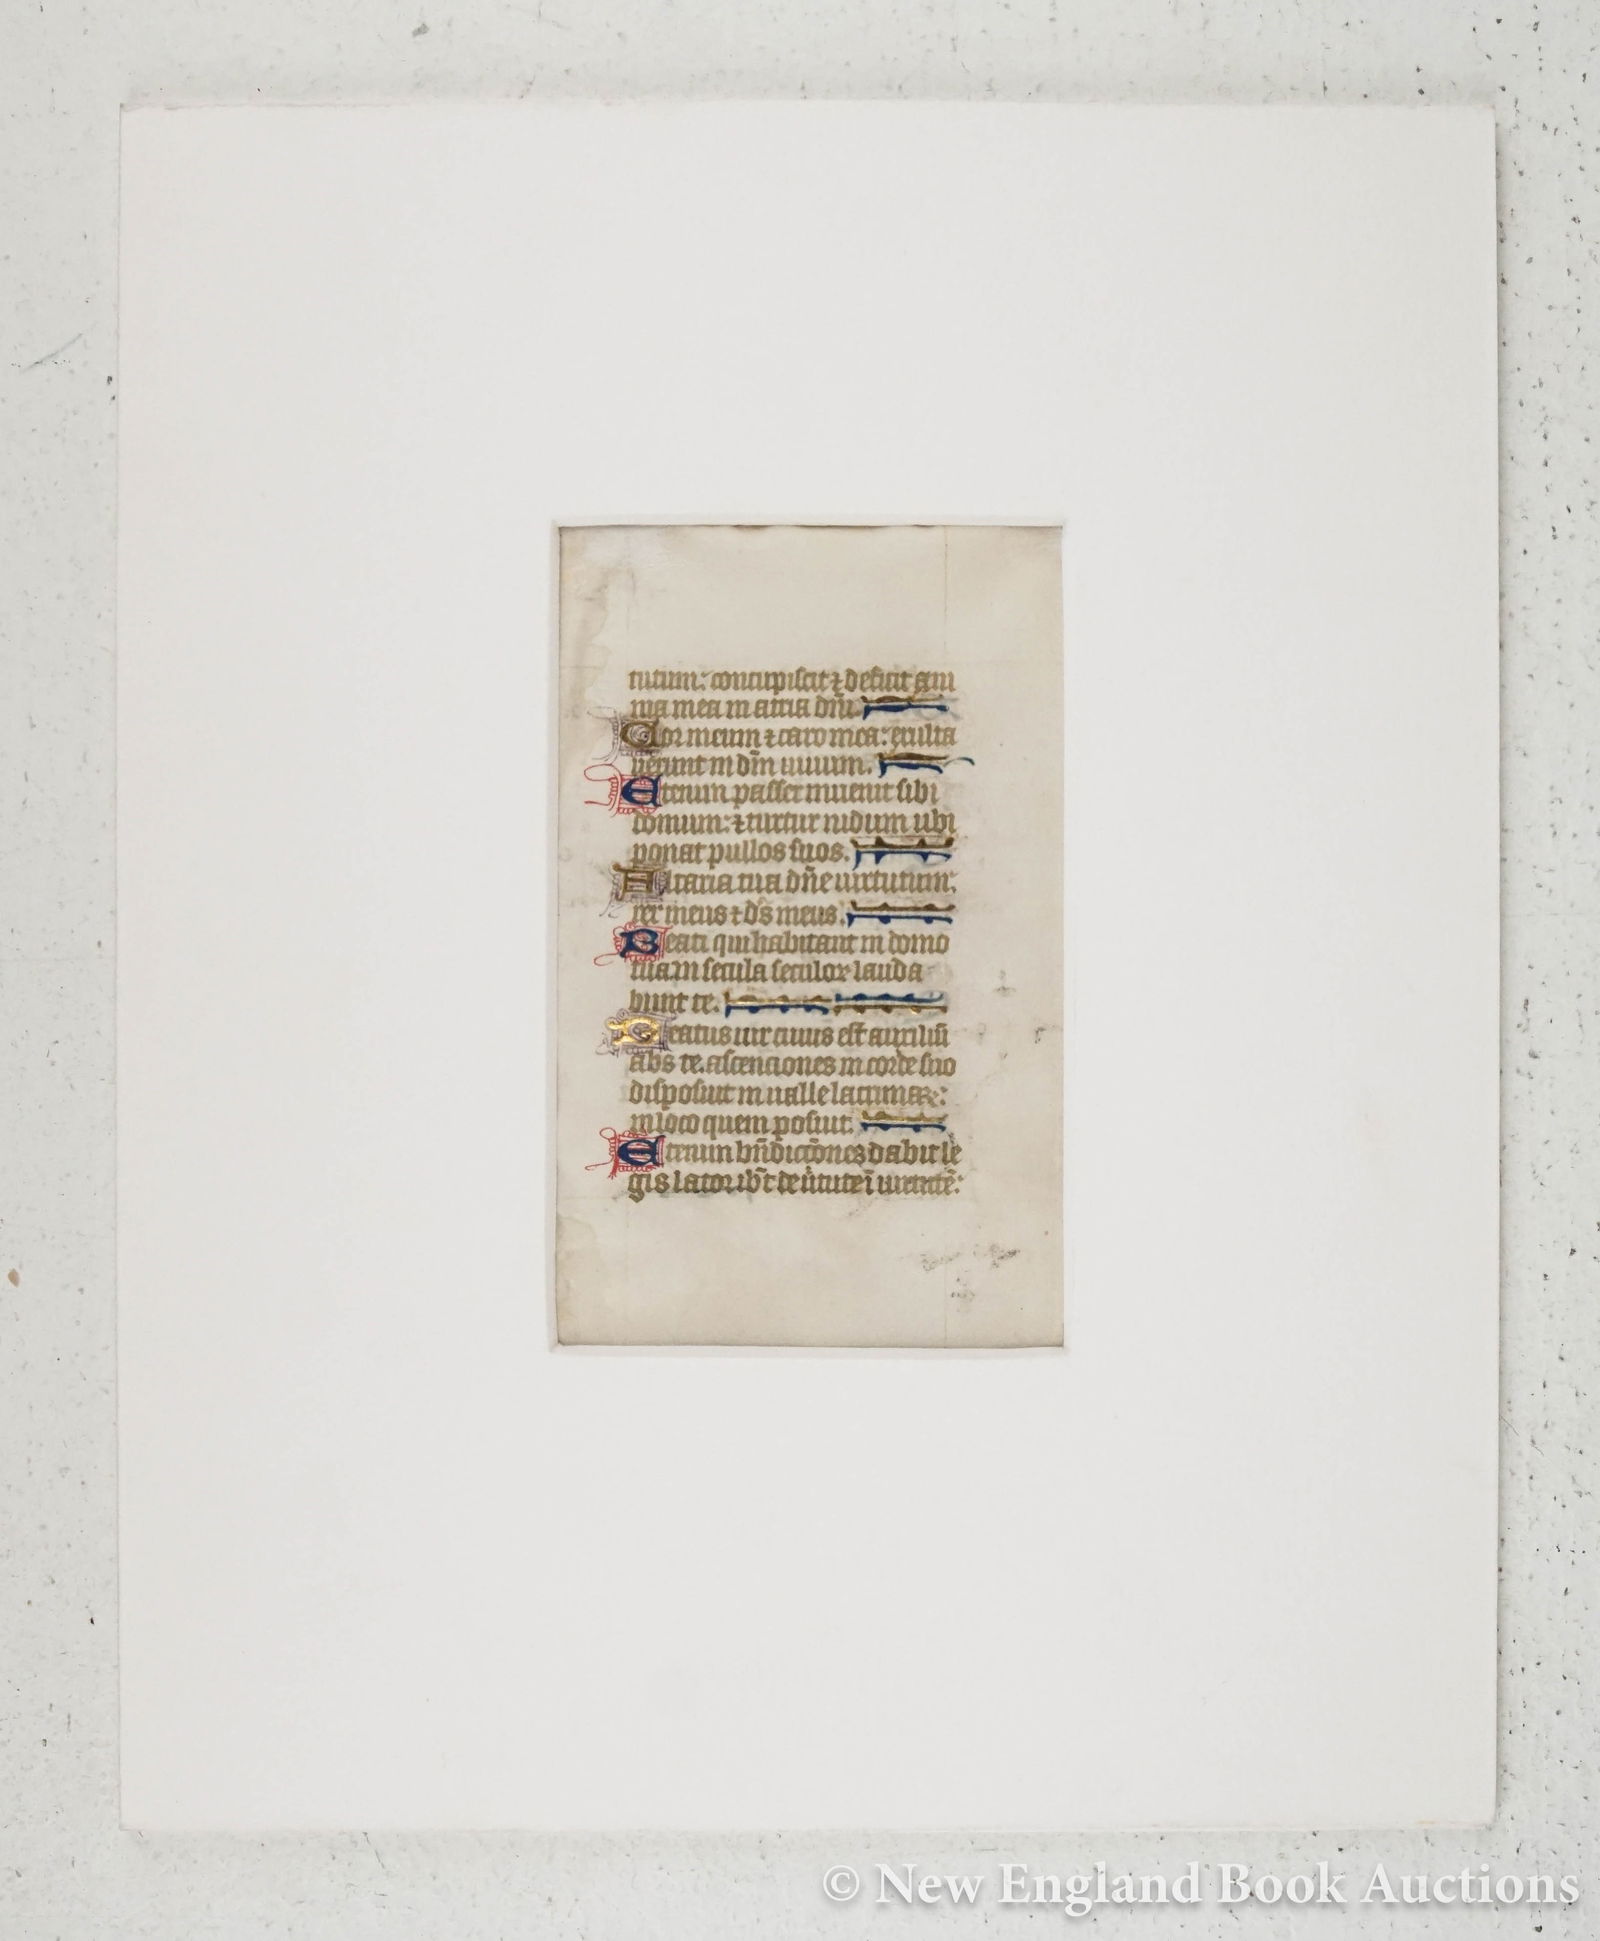 tutum: concupiscit ⁊ deficit ani
ma mea in atria dñi.
Cor meum ⁊ caro mea: exulta
verunt in dm̄ uiuum.
Etenim passer inuenit sibi
domum: ⁊ turtur nidum ubi
ponat pullos suos.
Altaria tua dñe uirtutum:
rex meus ⁊ ds̄ meus.
Beati qui habitant in domo
tua in secula seculoꝝ lauda
bunt te.
Beatus uir cuius est auxiliū
abs te. ascenciones in corde suo
disposuit in ualle lacrimaꝝ:
in loco quem posuit.
Etenim bn̄dictōnes dabit le
gis lator ib̄t de ūtute ī uirtutē:
© New England Book Auctions